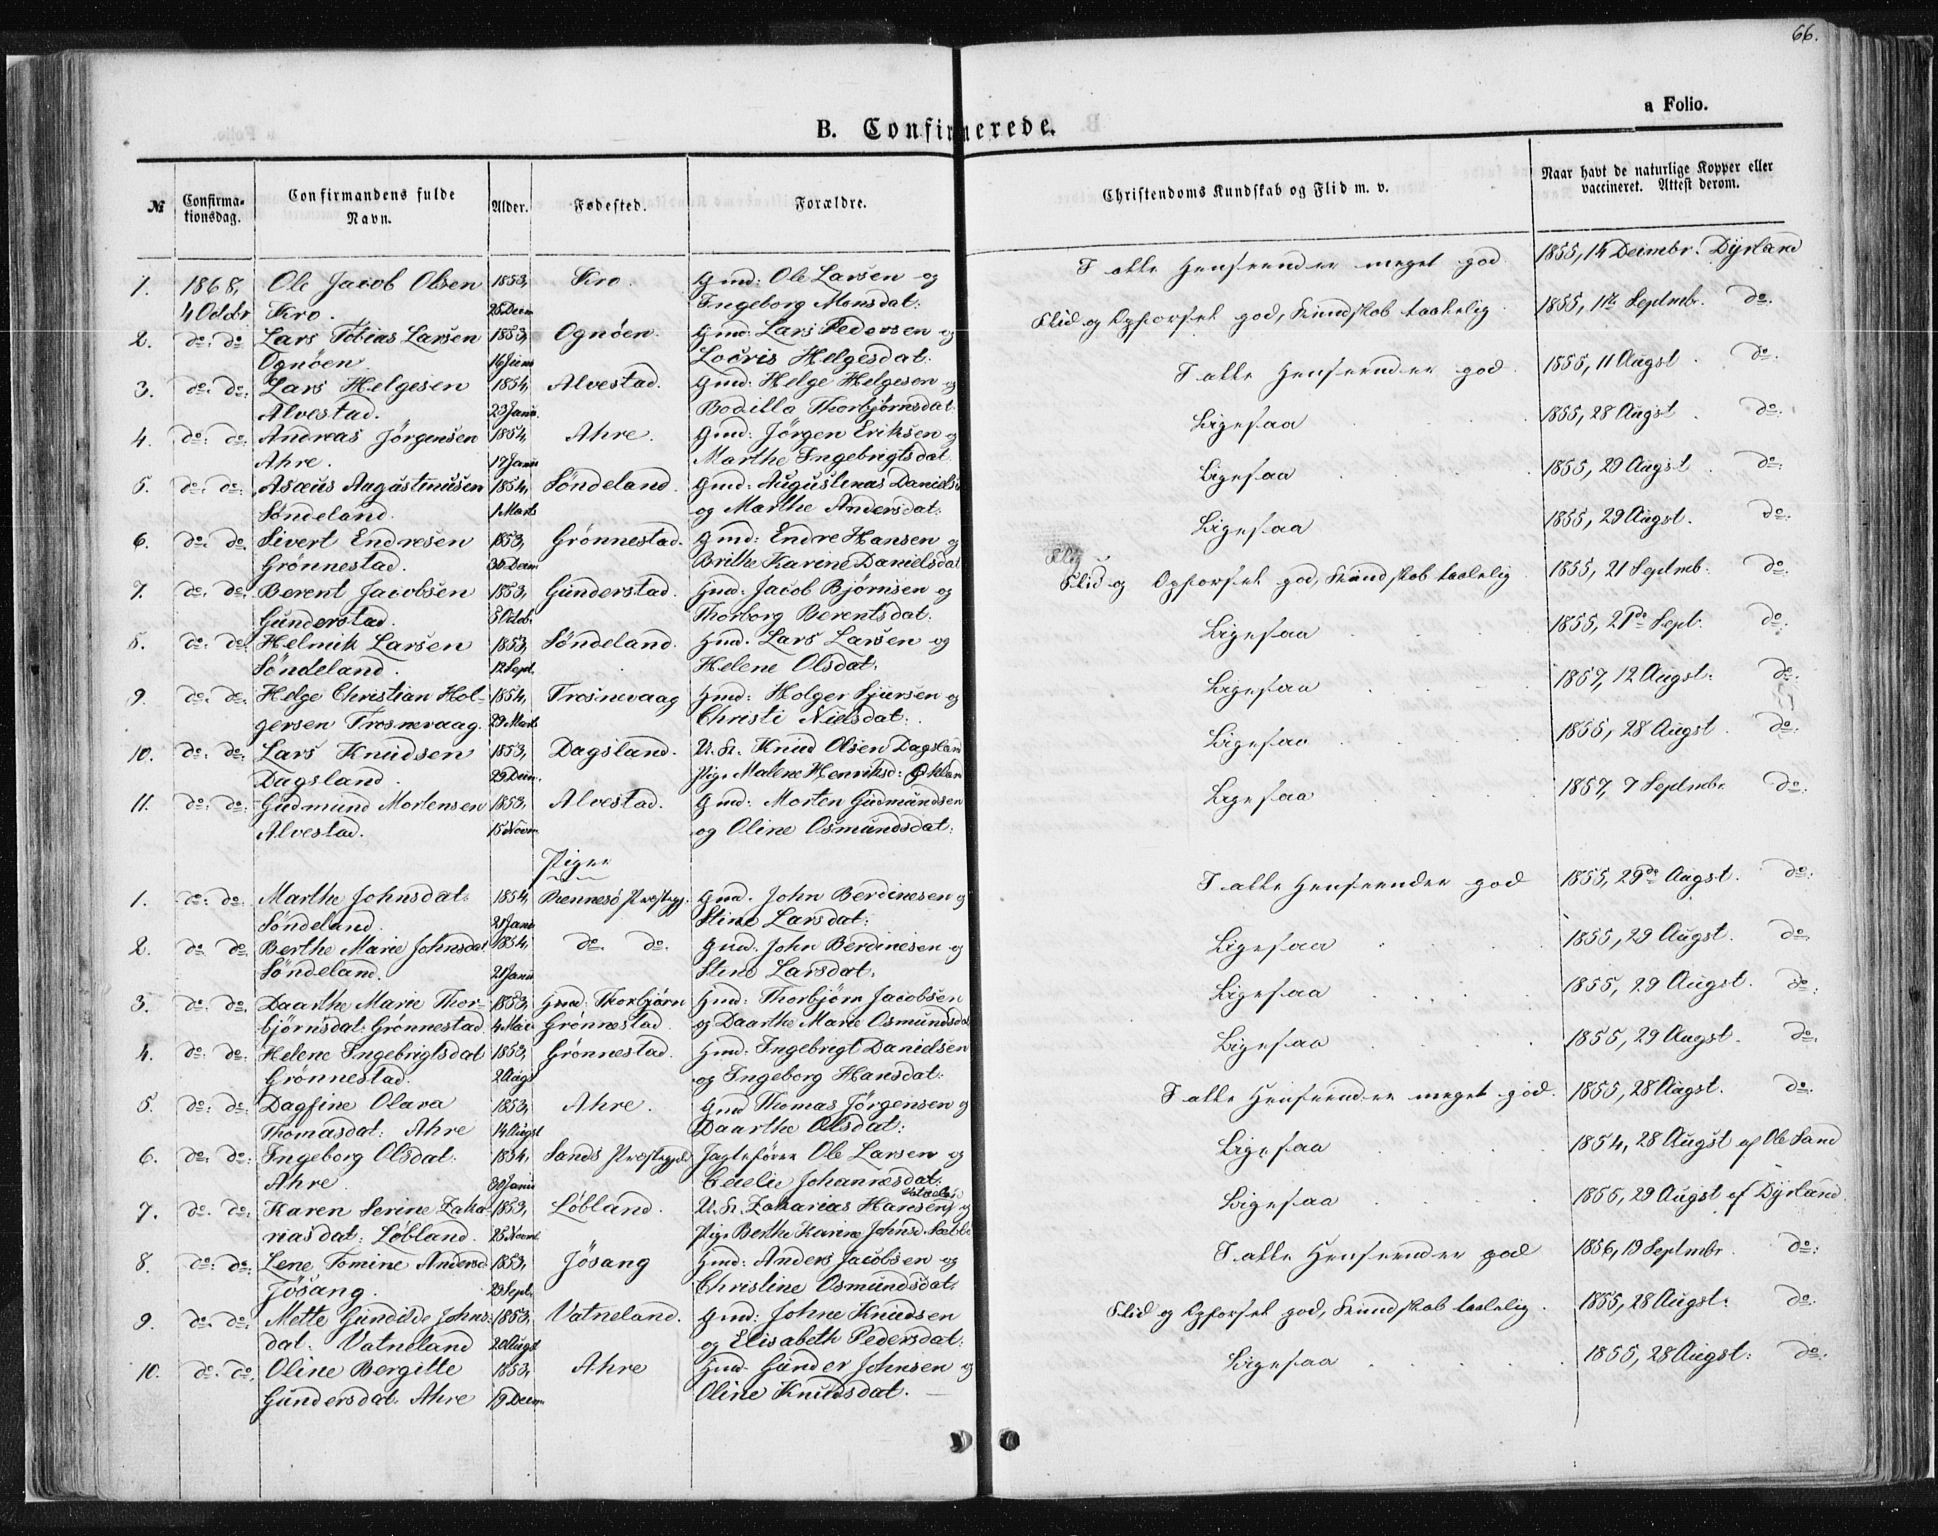 66.
a Folio.
B. Confirmerede.
№ Confirmationsdag. Confirmandens fulde Navn. Alder. Fødested. Forældre. Christendoms Kundskab og Flid m. v. Naar havt de naturlige Kopper eller vaccineret. Attest derom.
1. 1868, Ole Jacob Olsen 1853, Kro. Gmd: Ole Larsen og I alle Henseender meget god 1855, 14 Decmbr. Dyrland
4 Octbr Kro. 25 Decm Ingeborg Monsdat:
2. do: do Lars Tobias Larsen 1853, Ognöen. Gmd: Lars Pedersen og Flid og Opførsel god, Kundskab taalelig. 1855, 11te Septmbr. do:
Ognöen. 16 Juni Helgesdat:
3. do: do: Lars Helgesen 1854, Alvestad. Gmd: Helge Helgesen og I alle Henseender god. 1855, 11 Augst. do:
Alvestad. 23 Janu Bodilla Thorbjörnsdat
4. do: do: Andreas Jörgensen 1854, Ahre. Gmd: Jörgen Eriksen og Ligesaa 1855, 28 Augst. do:
Ahre. 17 Janu Marthe Ingebrigtsdat
5. do: do: Asæus Augustinusen 1854, Söndeland. Gmd: Augustinus Daniels Ligesaa 1855, 29 Augst. do:
Söndeland. 1 Marts og Marthe Andersdat:
6. do: do: Sivert Endresen 1853, Grönnestad. Gmd: Endre Hansen og Ligesaa 1855, 29 Augst. do:
Grönnestad. 30 Decm Brithe Karine Danielsdat
7. do: do: Berent Jacobsen 1853, Gunderstad. Hmd: Jacob Bjørnsen og Flid og Opførsel god, Kundskab taalelig. 1855, 21 Septmb. do:
Gunderstad. 8 Octob. Thorborg Berentsdat:
8. do: do: Helmik Larsen 1853, Söndeland. Hmd: Lars Larsen og Ligesaa 1855, 21de Sept. do:
Söndeland. 12 Sept. Helene Olsdat:
9. do: do: Helge Christian Hol- 1854, Trosnevaag Hmd: Holger Sjursen og Ligesaa 1857, 12 Augst. do:
gersen Trosnevaag. 29 Marts Christi Nielsdat:
10. do: do: Lars Knudsen 1853, Dagsland. U. K. Knud Olsen Dagsland Ligesaa 1855, 28 Augst. do:
Dagsland. 29 Decm. Pige Malene Henriksd:
11. do: do: Gudmund Mortensen 1853, Alvestad. Gmd: Morten Gudmundsen Ligesaa 1857, 7 Septmbr. do:
Alvestad. 15 Novm og Oline Osmundsdat:
Piger
1. do: do: Marthe Johnsdat: 1854, Rennesö Præstegj. Gmd. John Berdinesen og I alle Henseender god 1855, 29de Augst. do:
Söndeland. 21 Janu Stine Larsdat:
2. do do Berthe Marie Johnsdat 1854, do. do. Gmd. John Berdinesen og Ligesaa 1855, 29 Augst. do:
Söndeland. 21 Janu Stine Larsdat:
3. do: do: Daarthe Marie Thor- 1853, Gmd: Thorbjörn Hmd: Thorbjörn Jacobsen Ligesaa 1855, 29 Augst. do:
björnsdat: Grönnestad 4 Mai Grönnestad. og Daarthe Marie Osmundsdat
4. do: do: Helene Ingebrigtsdat 1853, Grönnestad. Hmd: Ingebrigt Danielsen Ligesaa 1855, 29 Augst. do:
Grönnestad. 2 Augs og Ingeborg Hansdat:
5. do: do: Dagfine Olava 1853, Ahre. Gmd Thomas Jörgensen og I alle Henseender meget god. 1855, 28 Augst. do:
Thomasdat: Ahre 14 Augst Daarthe Olsdat:
6. do: do: Ingeborg Olsdat: 1854, Sands Præstegjeld Jagtefører Ole Larsen og Ligesaa 1854, 28 Augst af Ole Sand
Ahre. 30 Janu Cecelie Johannesdat:
7. do. do: Karen Serine Zaka- 1853, Löbland. U. K. Zakarias Hansen og Ligesaa 1855, 29 Augst af Dyrland.
riasdat: Löbland. 25 Novm. Pige Berthe Karine Johnsd
8. do: do: Lene Tomine Andersd 1853, Jösang Hmd: Anders Jacobsen og I alle Henseender god 1856, 19 Septmbr. do:
Jösang. 29 Sept. Christine Osmundsdat:
9. do: do: Mette Gundilde Johns- 1853, Vatneland. Gmd: Johne Knudsen Flid og Opførsel god, Kundskab taalelig. 1855, 28 Augst: do:
dat: Vatneland 20 Augst og Elisabeth Pedersdat:
10. do: do. Oline Bergitte 1853, Ahre Hmd. Gunder Johnsen og Ligesaa 1855, 28 Augst: do:
Gundersdat. Ahre 19 Decm. Oline Knudsdat.